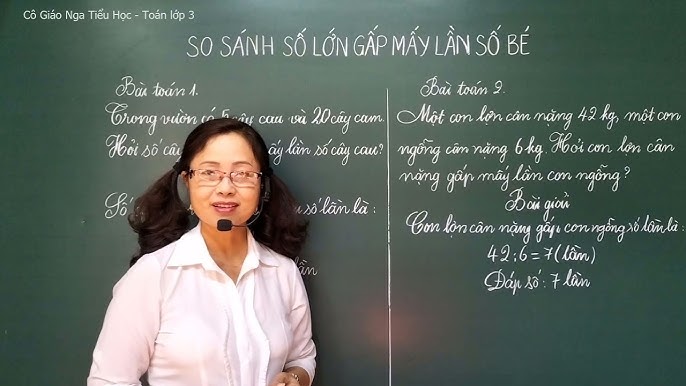 Cô Giáo Nga Tiểu Học - Toán lớp 3
SO SÁNH SỐ LỚN GẤP MẤY LẦN SỐ BÉ
Bài toán 1.
Trong vườn có 5 cây cau và 20 cây cam.
Hỏi số cây lần số cây cau?
Số số lần là :
lần
Bài toán 2.
Một con lợn cân nặng 42 kg, một con
ngỗng cân nặng 6 kg. Hỏi con lợn cân
nặng gấp mấy lần con ngỗng?
Bài giải
Con lợn cân nặng gấp con ngỗng số lần là :
42 : 6 = 7 (lần)
Đáp số : 7 lần